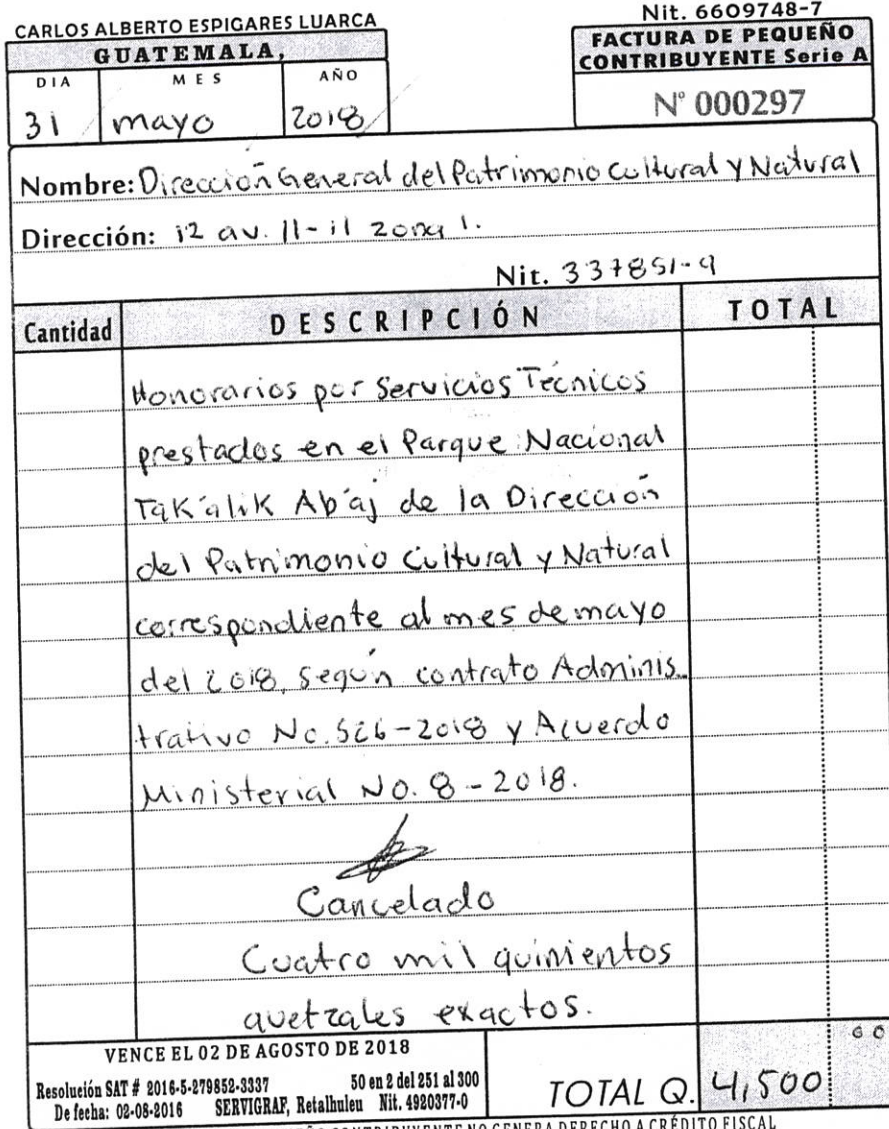 CARLOS ALBERTO ESPIGARES LUARCA
Nit. 6609748-7
GUATEMALA,
FACTURA DE PEQUEÑO
CONTRIBUYENTE Serie A
DIA MES AÑO
N° 000297
31 mayo 2018
Nombre: Dirección General del Patrimonio Cultural y Natural
Dirección: 12 av. 11-11 zona 1.
Nit. 337851-9
Cantidad DESCRIPCIÓN TOTAL
Honorarios por Servicios Técnicos
prestados en el Parque Nacional
Tak'alik Ab'aj de la Dirección
del Patrimonio Cultural y Natural
correspondiente al mes de mayo
del 2018, según contrato Adminis
trativo No. 526-2018 y Acuerdo
Ministerial No. 8-2018.
Cancelado
Cuatro mil quinientos
quetzales exactos.
VENCE EL 02 DE AGOSTO DE 2018
Resolución SAT # 2016-5-279852-3337 50 en 2 del 251 al 300
De fecha: 02-08-2016 SERVIGRAF, Retalhuleu Nit. 4920377-0
TOTAL Q. 4,500
CONTRIBUYENTE NO GENERA DERECHO A CRÉDITO FISCAL